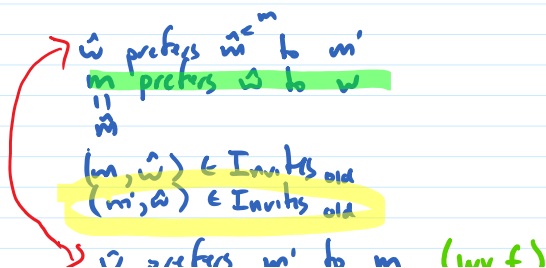 m
ŵ prefers m̂ to m'
m prefers ŵ to w
=
m̂
(m, ŵ) ∈ Invites old
(m', ŵ) ∈ Invites old
ŵ prefers m' to m (wrt)